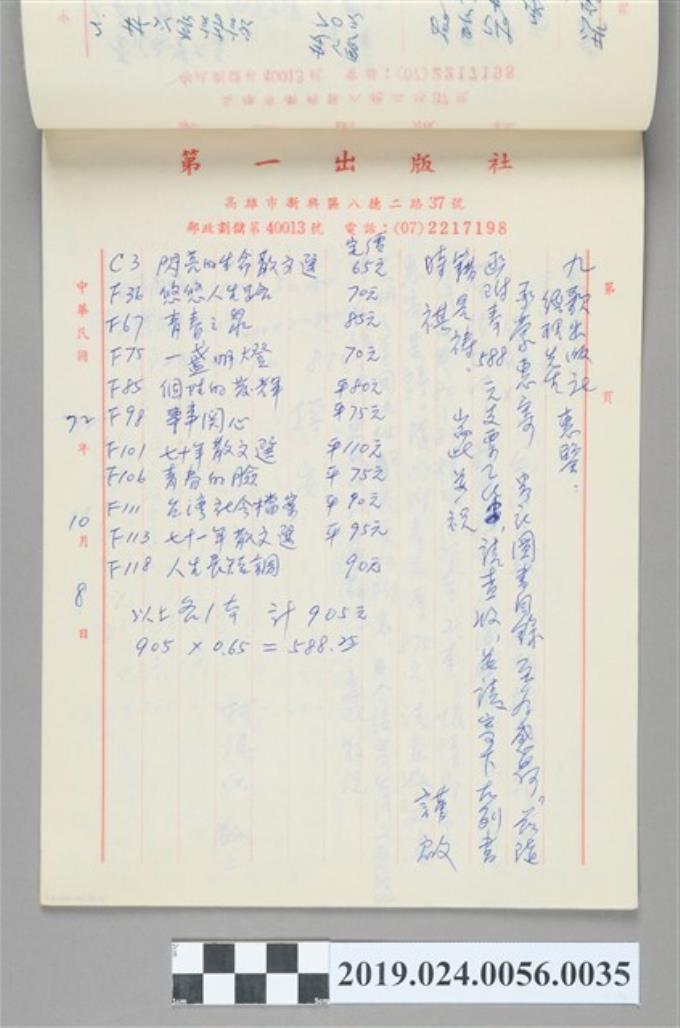 第一出版社
高雄市新興區八德二路37號
郵政劃儲第40013號 電話:(07)2217198
第 頁
九歌出版社 惠鑒:
經理先生
承蒙惠寄 貴社圖書目錄至為感荷。茲隨
函附奉588元支票乙紙,請查收,並請寄下左列書
籍是禱。 耑此並祝
時祺 謹啟
定價
C3 閃亮的生命散文選 65元
F36 悠悠人生路 70元
F67 青春之泉 85元
F75 一盞明燈 70元
F85 個性的光輝 平80元
F98 事事關心 平75元
F101 七十年散文選 平110元
F106 青春的臉 平75元
F111 台灣社會檔案 平90元
F113 七十一年散文選 平95元
F118 人生長短調 90元
以上各1本 計905元
905 × 0.65 = 588.25
中華民國72年10月8日
2019.024.0056.0035